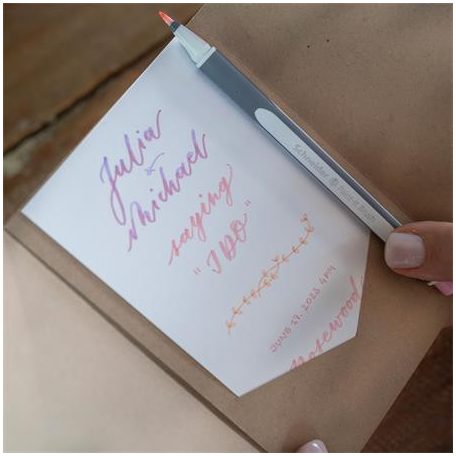 Julia
&
Michael
saying
"I DO"
JUNE 17, 2023 4PM
Rosewood
Schneider Paint-It